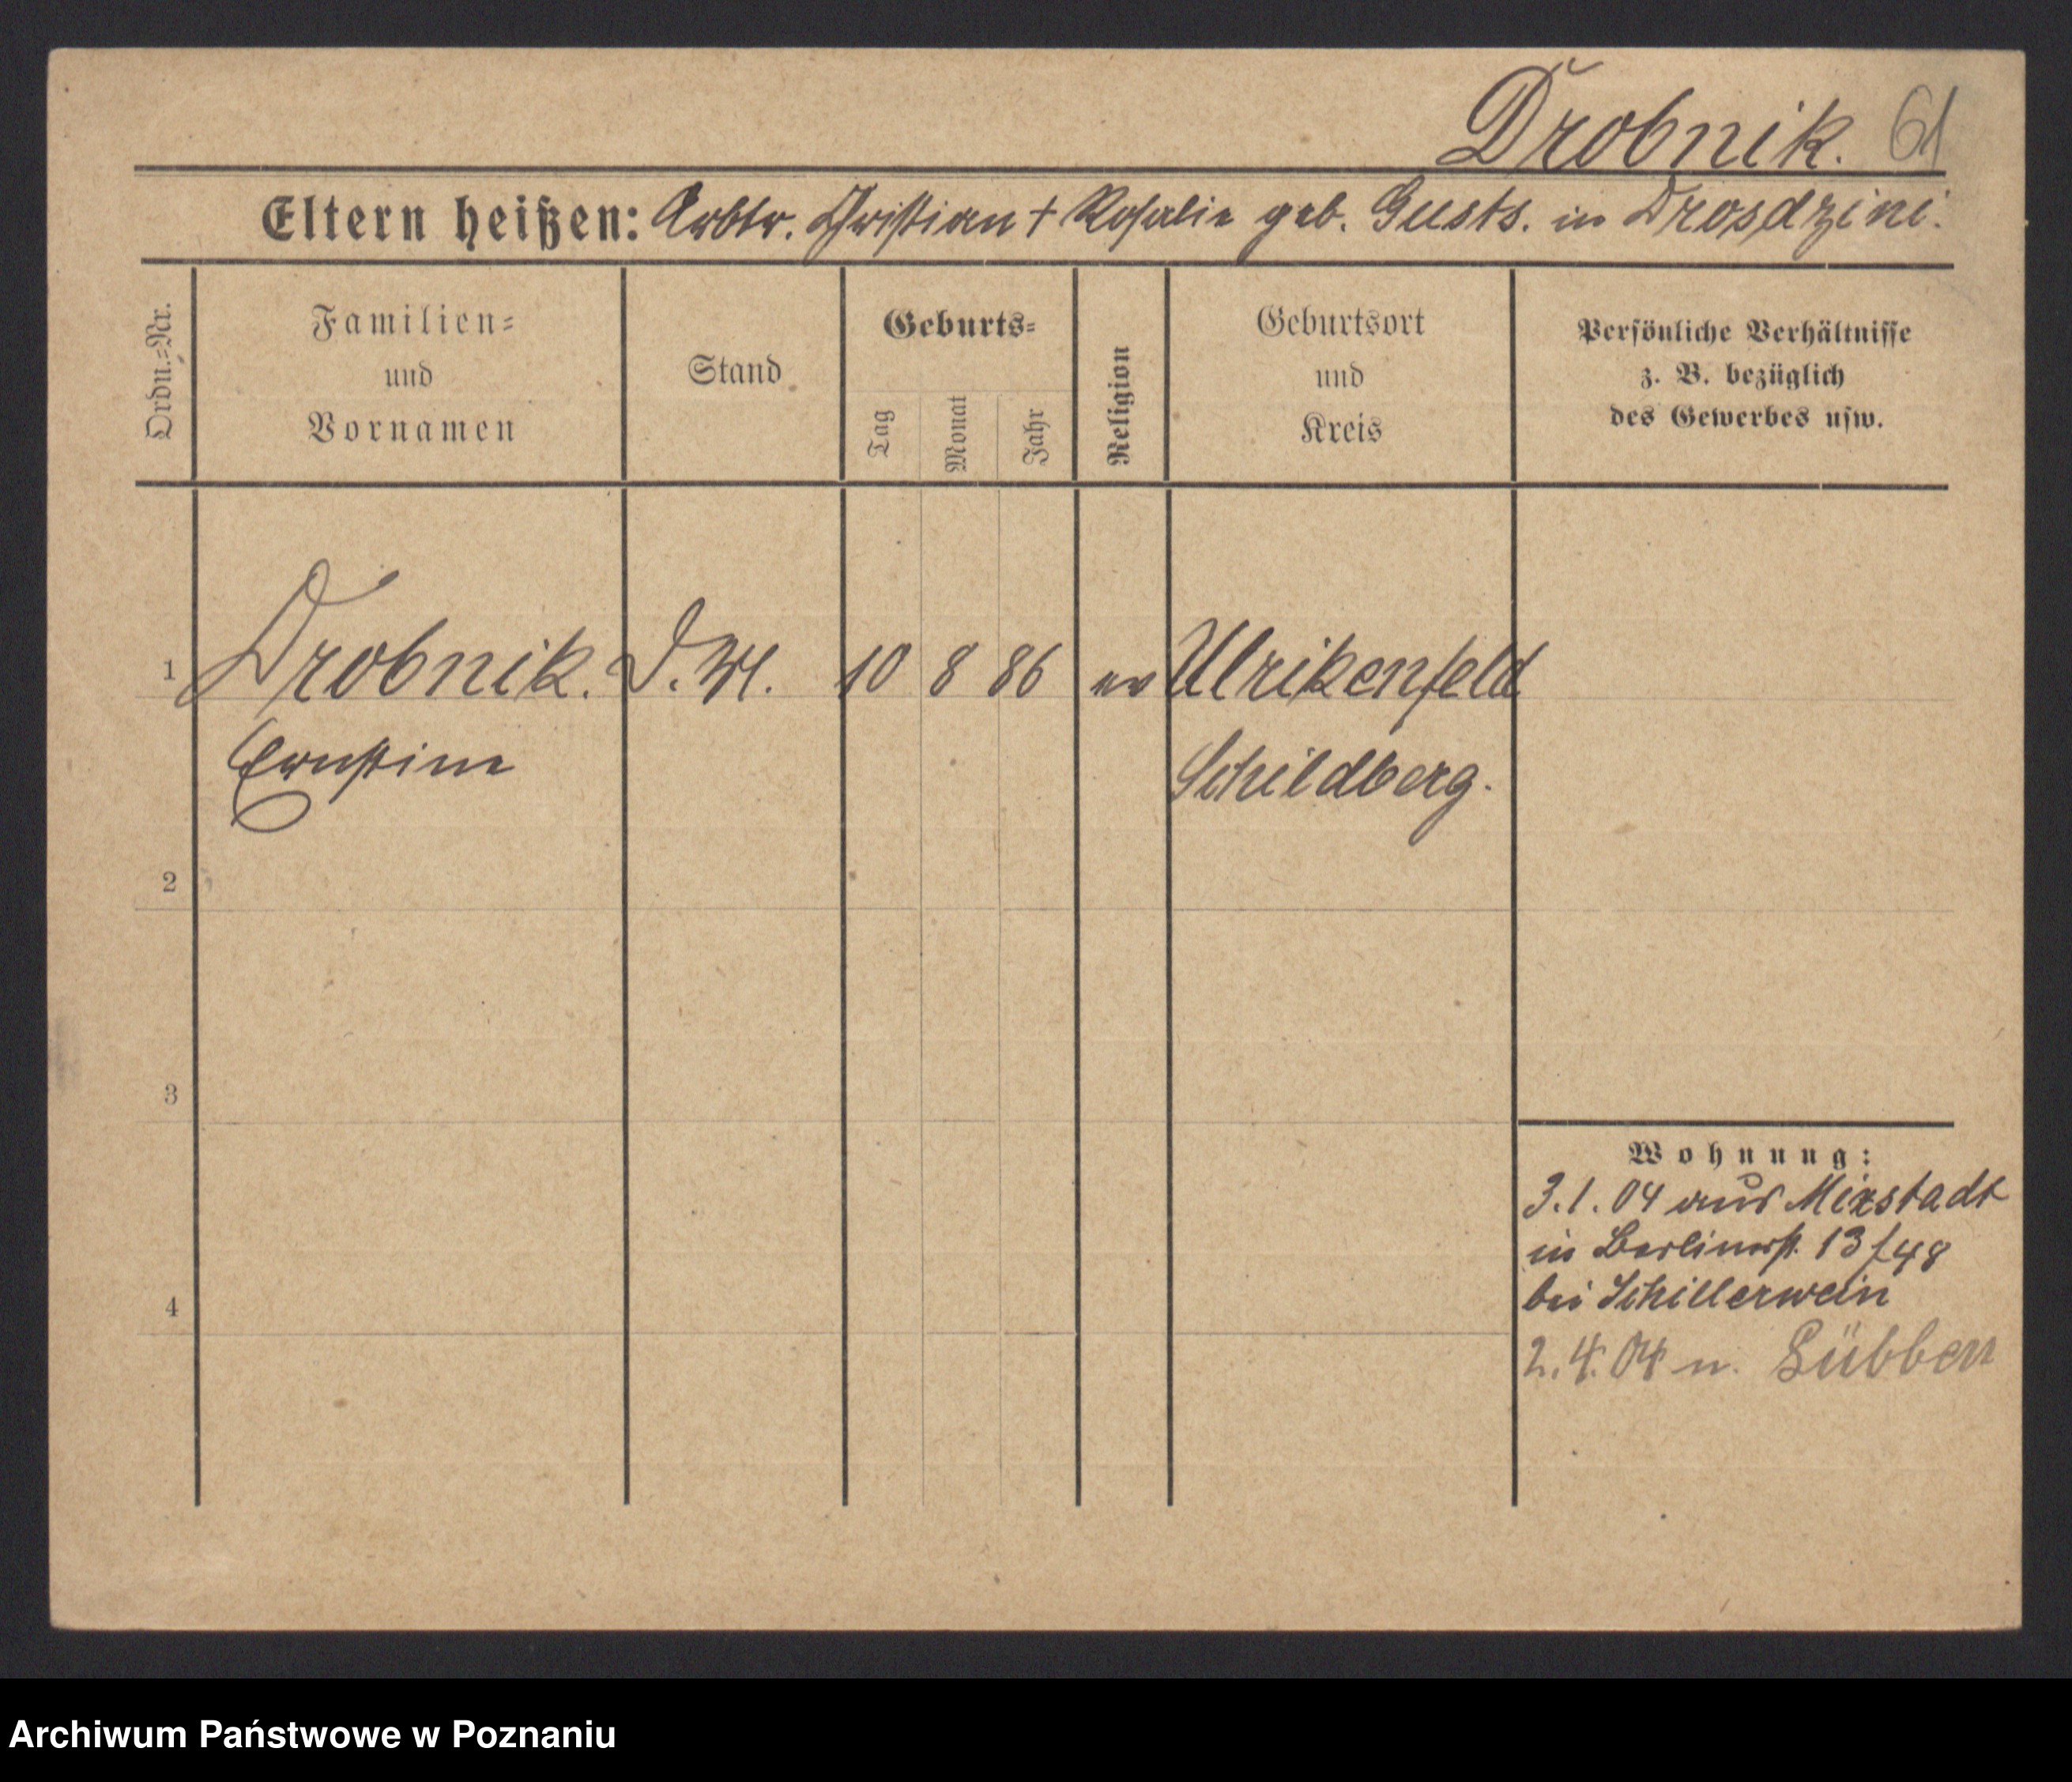 Drobnik. 61
Eltern heißen: Arbtr. Christian + Rosalie geb. Gusts. in Drosdzini.
Ordn.=Nr.
Familien=
und
Vornamen
Stand
Geburts=
Tag
Monat
Jahr
Religion
Geburtsort
und
Kreis
Persönliche Verhältnisse
z. B. bezüglich
des Gewerbes usw.
1 Drobnik. D. M. 10 8 86 ev Ulrikenfeld
Ernstine Schildberg.
2
3
4
Wohnung:
3.1.04 aus Mixstadt
in Berlinerst. 13
bei Schillerwein
2.4.04 n. Lübben
Archiwum Państwowe w Poznaniu